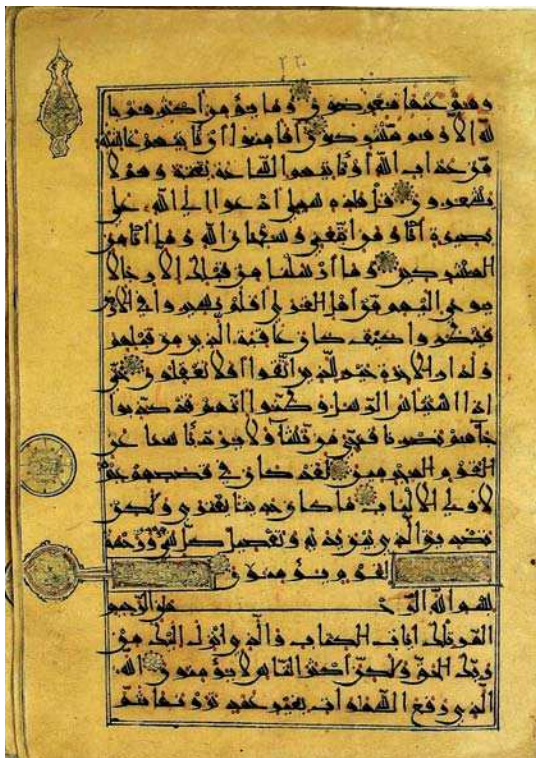 وهم عنها معرضون وما يؤمن أكثرهم با
لله إلا وهم مشركون أفأمنوا أن تأتيهم غاشية
من عذاب الله أو تأتيهم الساعة بغتة وهم لا
يشعرون قل هذه سبيلي أدعوا إلى الله على
بصيرة أنا ومن اتبعني وسبحان الله وما أنا من
المشركين وما أرسلنا من قبلك إلا رجالا
نوحي إليهم من أهل القرى أفلم يسيروا في الأرض
فينظروا كيف كان عاقبة الذين من قبلهم
ولدار الآخرة خير للذين اتقوا أفلا تعقلون حتى
إذا استيأس الرسل وظنوا أنهم قد كذبوا
جاءهم نصرنا فنجي من نشاء ولا يرد بأسنا عن
القوم المجرمين لقد كان في قصصهم عبرة
لأولي الألباب ما كان حديثا يفترى ولكن
تصديق الذي بين يديه وتفصيل كل شيء وهدى ورحمة
لقوم يؤمنون
بسم الله الرحمن الرحيم
المر تلك آيات الكتاب والذي أنزل إليك من
ربك الحق ولكن أكثر الناس لا يؤمنون الله
الذي رفع السموات بغير عمد ترونها ثم